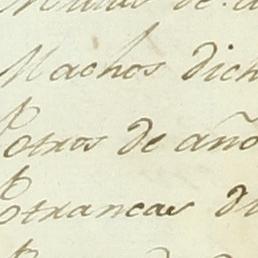 Machos dich
Potros de año
Potrancas di